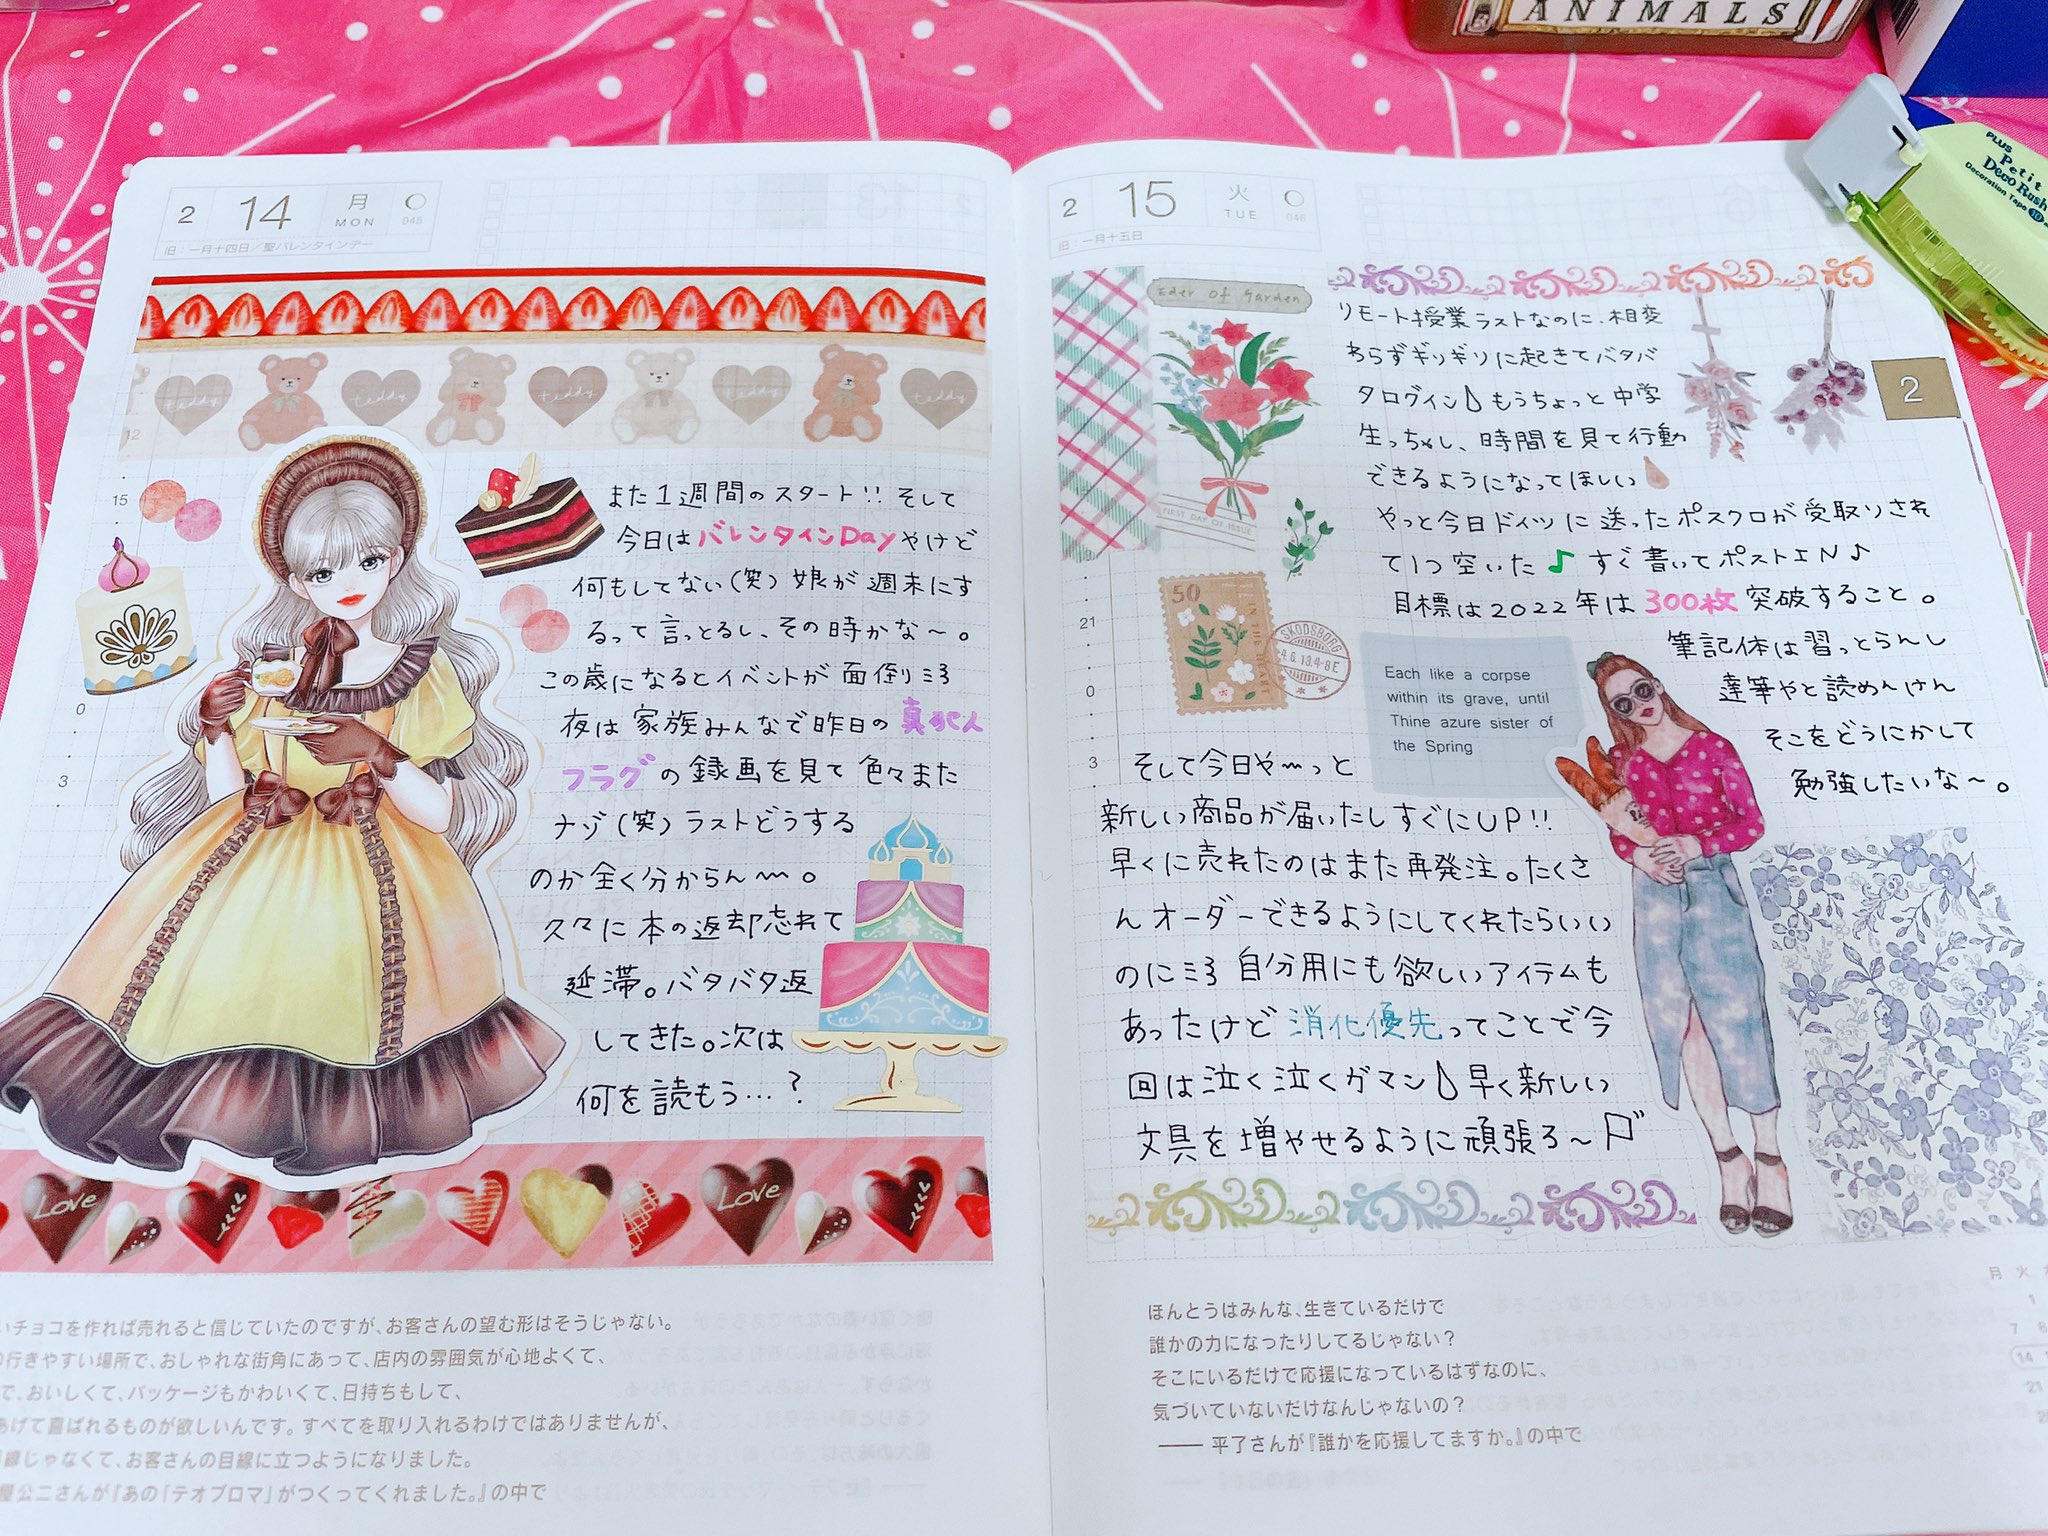 ANIMALS
PLUS
Petit
Deco Rush
Decoration Tape
2 14 月 MON 045
旧:一月十四日/聖バレンタインデー
teddy teddy teddy teddy teddy
12
15
0
3
また1週間のスタート!! そして
今日はバレンタインDayやけど
何もしてない(笑) 娘が週末にす
るって言っとるし、その時かな〜。
この歳になるとイベントが面倒りミ3
夜は家族みんなで昨日の真犯人
フラグの録画を見て色々また
ナゾ(笑) ラストどうする
のか全く分からん〜。
久々に本の返却忘れて
延滞。バタバタ返
してきた。次は
何を読もう…?
Love Love
いチョコを作れば売れると信じていたのですが、お客さんの望む形はそうじゃない。
行きやすい場所で、おしゃれな街角にあって、店内の雰囲気が心地よくて、
で、おいしくて、パッケージもかわいくて、日持ちもして、
あげて喜ばれるものが欲しいんです。すべてを取り入れるわけではありませんが、
線じゃなくて、お客さんの目線に立つようになりました。
屋公二さんが『あの「テオブロマ」がつくってくれました。』の中で
2 15 火 TUE 046
旧:一月十五日
Eder of Garden
リモート授業ラストなのに、相変
わらずギリギリに起きてバタバ
タログイン もうちょっと中学
生っちゃし、時間を見て行動
できるようになってほしい
やっと今日ドイツに送ったポスクロが受取りされ
て1つ空いた♪ すぐ書いてポストIN♪
目標は2022年は300枚突破すること。
筆記体は習っとらんし
達筆やと読めんけん
そこをどうにかして
勉強したいな〜。
2
FIRST DAY OF ISSUE
21
0
3
50
SKODSBORG
Each like a corpse
within its grave, until
Thine azure sister of
the Spring
そして今日や〜っと
新しい商品が届いたしすぐにUP!!
早くに売れたのはまた再発注。たくさ
んオーダーできるようにしてくれたらいい
のにミ3 自分用にも欲しいアイテムも
あったけど消化優先ってことで今
回は泣く泣くガマン 早く新しい
文具を増やせるように頑張ろ〜
ほんとうはみんな、生きているだけで
誰かの力になったりしてるじゃない?
そこにいるだけで応援になっているはずなのに、
気づいていないだけなんじゃないの?
—— 平了さんが『誰かを応援してますか。』の中で
月 火
1
7 8
14
21